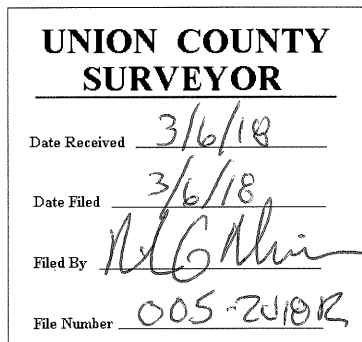 UNION COUNTY
SURVEYOR
Date Received 3/6/18
Date Filed 3/6/18
Filed By
File Number 005-2018R